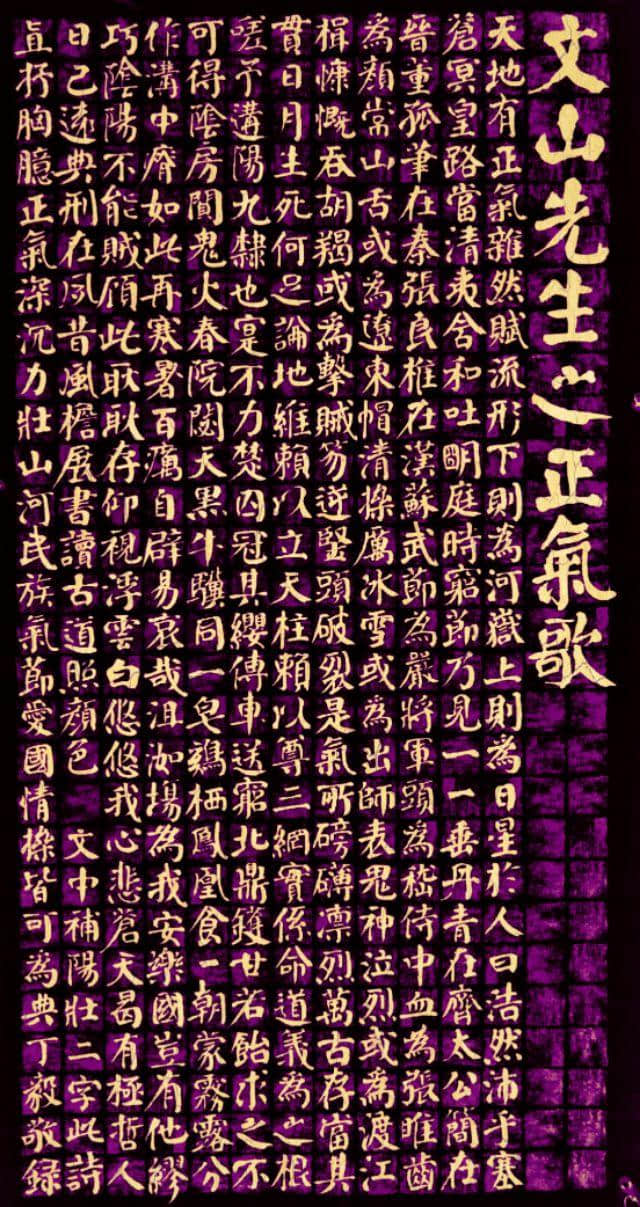 文山先生之正氣歌
天地有正氣雜然賦流形下則為河嶽上則為日星於人曰浩然沛乎塞
蒼冥皇路當清夷含和吐明庭時窮節乃見一一垂丹青在齊太公簡在
晉董狐筆在秦張良椎在漢蘇武節為嚴將軍頭為嵇侍中血為張睢齒
為顏常山舌或為遼東帽清操厲冰雪或為出師表鬼神泣烈或為渡江
楫慷慨吞胡羯或為擊賊笏逆豎頭破裂是氣所磅礴凜烈萬古存當其
貫日月生死何足論地維賴以立天柱賴以尊三綱實係命道義為之根
嗟予遘陽九隸也寔不力楚囚冠其纓傳車送窮北鼎鑊甘若飴求之不
可得陰房闃鬼火春院閟天黑牛驥同一皂鷄栖鳳凰食一朝蒙霧露分
作溝中瘠如此再寒暑百癘自辟易哀哉沮洳場為我安樂國豈有他繆
巧陰陽不能賊顧此耿耿存仰視浮雲白悠悠我心悲蒼天曷有極哲人
日已遠典刑在夙昔風檐展書讀古道照顏色 文中補陽壯二字此詩
真抒胸臆正氣深沉力壯山河民族氣節愛國情操皆可為典丁毅敬録